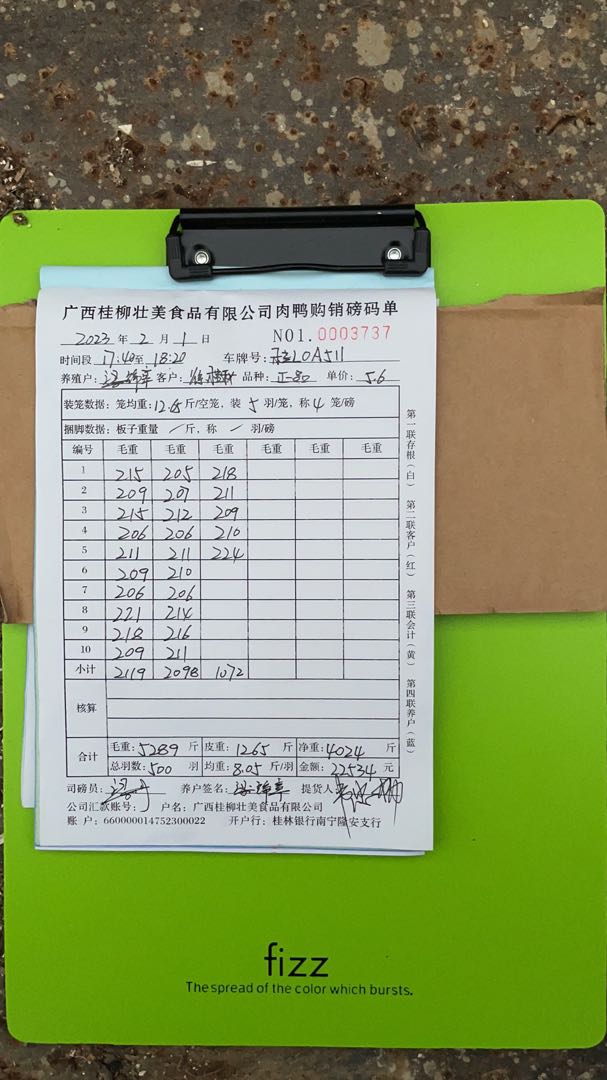 广西桂柳壮美食品有限公司肉鸭购销磅码单
2023 年 2 月 1 日 NO1.0003737
时间段 17:40至 18:20 车牌号: 桂LOA511
养殖户: 客户: 品种: 单价: 5.6
装笼数据: 笼均重: 12.65 斤/空笼, 装 5 羽/笼, 称 4 笼/磅
捆脚数据: 板子重量 / 斤, 称 / 羽/磅
编号 毛重 毛重 毛重 毛重 毛重 毛重
1 215 205 218
2 209 207 211
3 215 212 209
4 206 206 210
5 211 211 224
6 209 210
7 206 206
8 221 214
9 218 216
10 209 211
小计 2119 2098 1072
核算
合计 毛重: 5289 斤 皮重: 1265 斤 净重: 4024 斤
总羽数: 500 羽 均重: 8.05 斤/羽 金额: 22534 元
司磅员: 养户签名: 提货人
公司汇款账号: 户名: 广西桂柳壮美食品有限公司
账 户: 660000014752300022 开户行: 桂林银行南宁隆安支行
第一联存根(白) 第二联客户(红) 第三联会计(黄) 第四联养户(蓝)
fizz
The spread of the color which bursts.